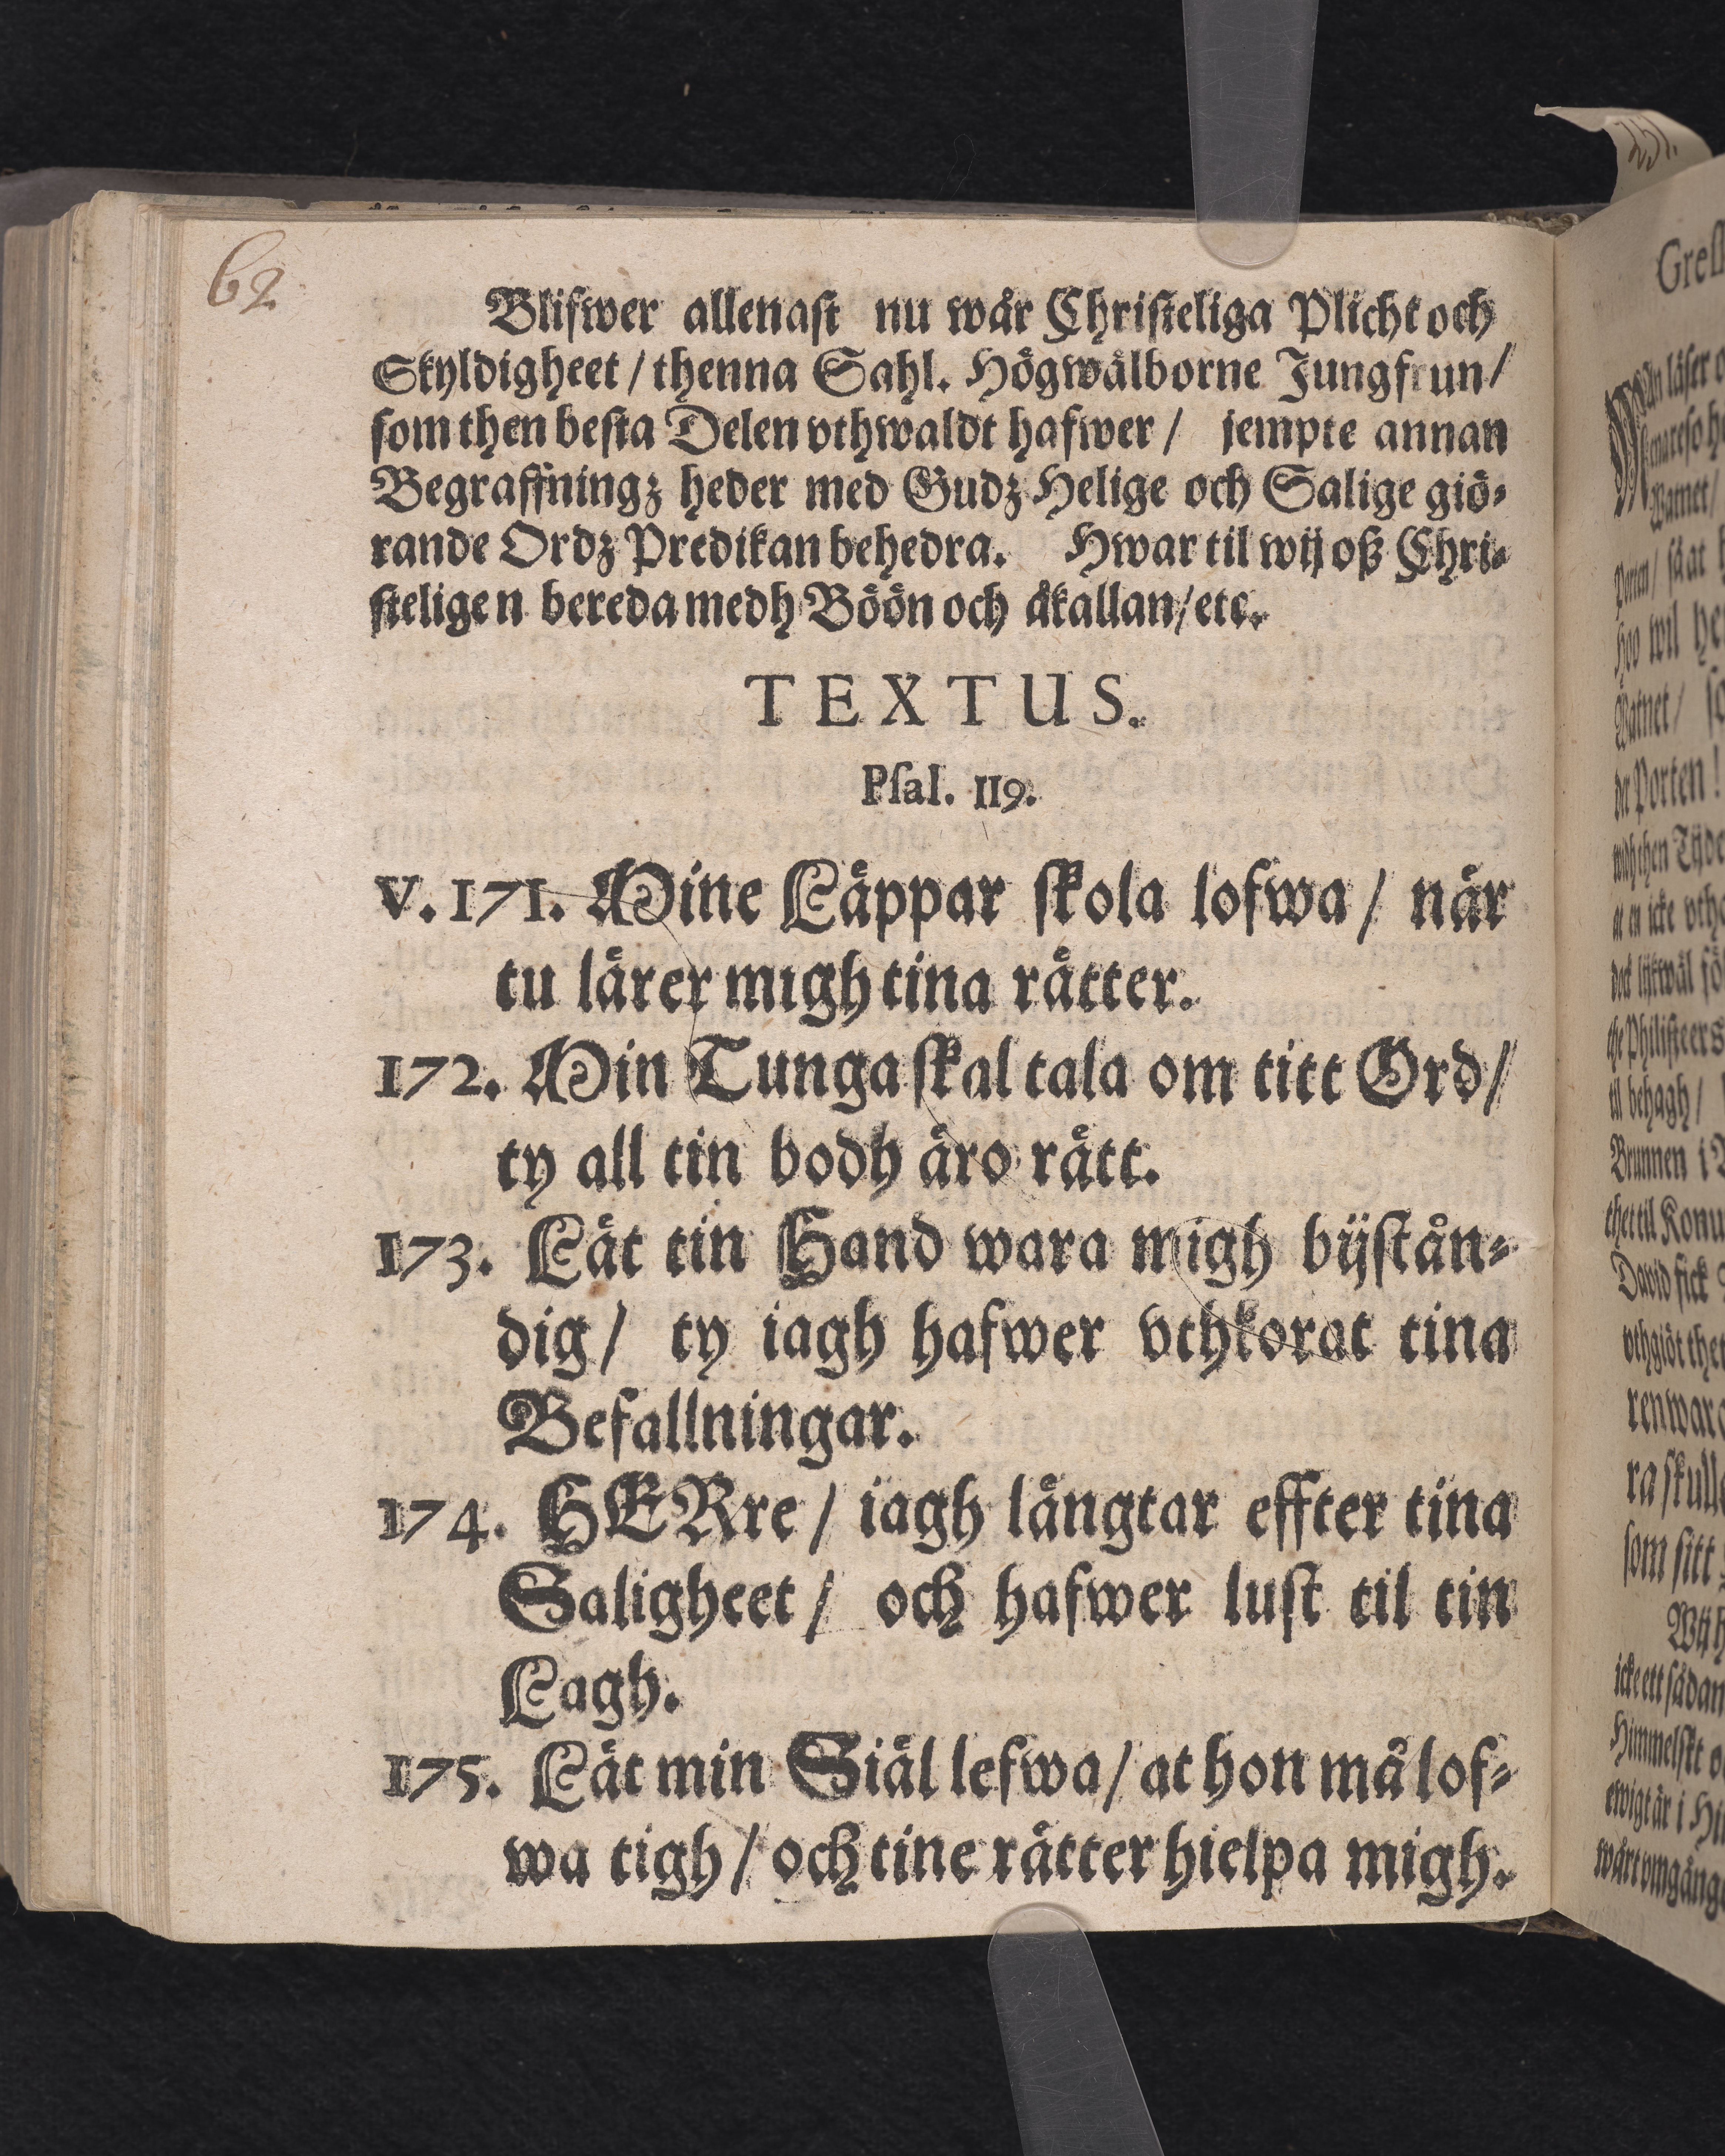 62
Blifwer allenast nu wår Christeliga Plicht och
Skyldigheet / thenna Sahl. Högwälborne Jungfrun /
som then besta Delen vthwaldt hafwer / jempte annan
Begraffningz heder med Gudz Helige och Salige giö-
rande Ordz Predikan behedra. Hwar til wij oß Chri-
steligen bereda medh Böön och åkallan / etc.
TEXTUS.
Psal. 119.
V. 171. Mine Läppar skola lofwa / när
tu lärer migh tina rätter.
172. Min Tunga skal tala om titt Ord /
ty all tin bodh äro rätt.
173. Lät tin Hand wara migh bijstån-
dig / ty iagh hafwer vthkorat tina
Befallningar.
174. HERre / iagh längtar effter tina
Saligheet / och hafwer lust til tin
Lagh.
175. Lät min Siäl lefwa / at hon må lof-
wa tigh / och tine rätter hielpa migh.
251.
Porten /
så at
Hoo wil
Watnet /
der Porten !
the Philisteers
til behagh /
Brunnen i
thet til
David fick
vthgiöt
som sitt
Himmelskt
ewigt är i